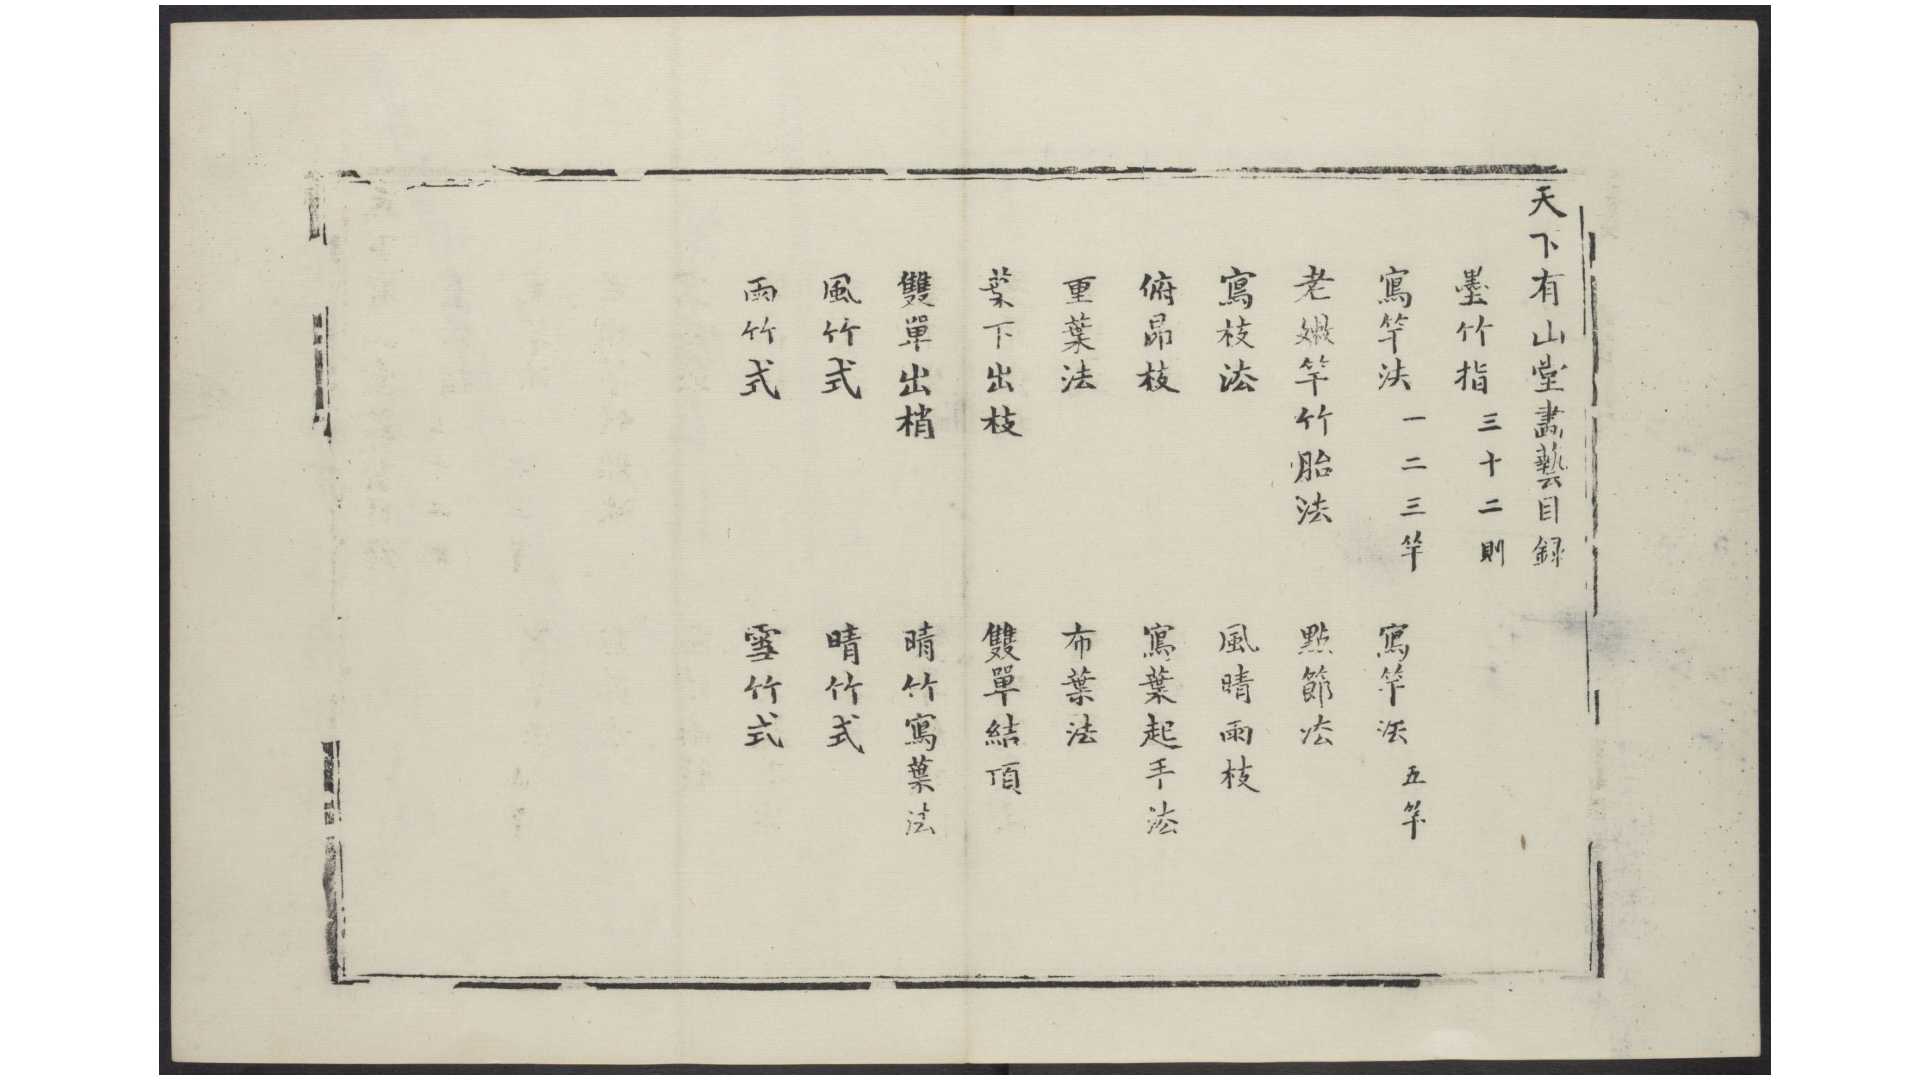 天下有山堂畫藝目録
墨竹指 三十二則
寫竿法 一二三竿 寫竿法 五竿
老嫩竿竹胎法 點節法
寫枝法 風晴雨枝
俯昂枝 寫葉起手法
重葉法 布葉法
葉下出枝 雙單結頂
雙單出梢 晴竹寫葉法
風竹式 晴竹式
雨竹式 雪竹式